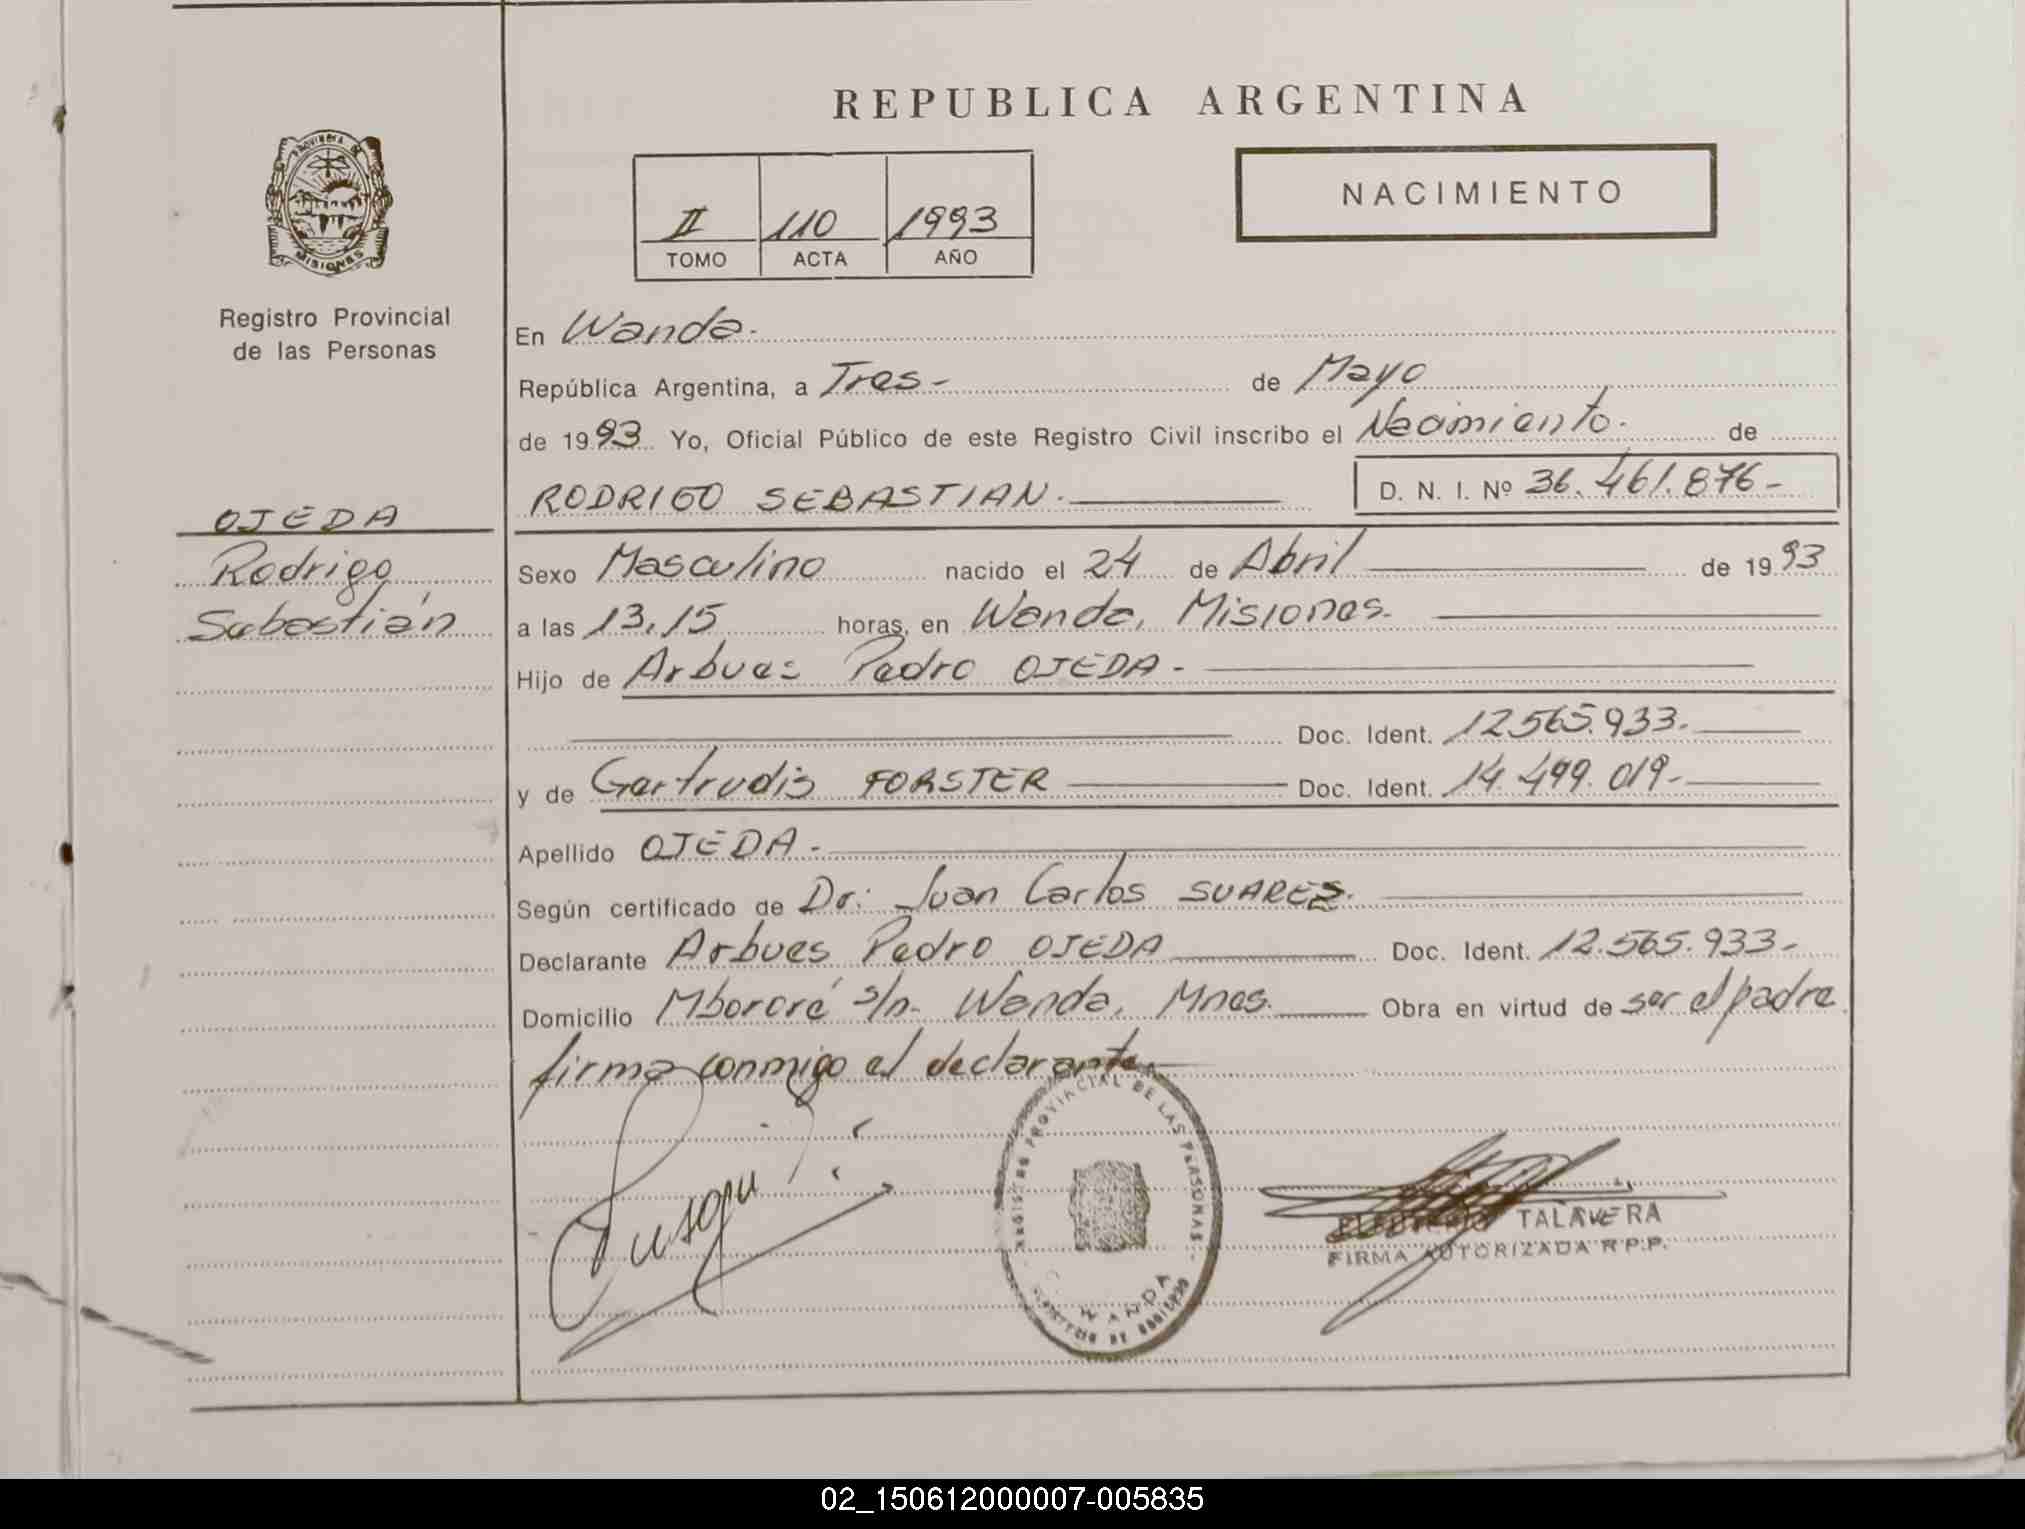 REPUBLICA ARGENTINA
NACIMIENTO
II 110 1993
TOMO ACTA AÑO
PROVINCIA DE
MISIONES
Registro Provincial
de las Personas
OJEDA
Rodrigo
Sebastián
En Wanda.
República Argentina, a Tres- de Mayo
de 1993 Yo, Oficial Público de este Registro Civil inscribo el Nacimiento. de
RODRIGO SEBASTIAN. D. N. I. Nº 36.461.876-
Sexo Masculino nacido el 24 de Abril de 1993
a las 13,15 horas, en Wanda, Misiones.
Hijo de Arbues Pedro OJEDA-
Doc. Ident. 12.565.933.
y de Gertrudis FORSTER Doc. Ident. 14.499.019-
Apellido OJEDA-
Según certificado de Dr: Juan Carlos SUAREZ.
Declarante Arbues Pedro OJEDA Doc. Ident. 12.565.933-
Domicilio Mbororé s/n- Wanda, Mnes. Obra en virtud de ser el padre
firma conmigo el declarante
REGISTRO PROVINCIAL DE LAS PERSONAS
WANDA
ELEUTERIO TALAVERA
FIRMA AUTORIZADA R.P.P.
02_150612000007-005835